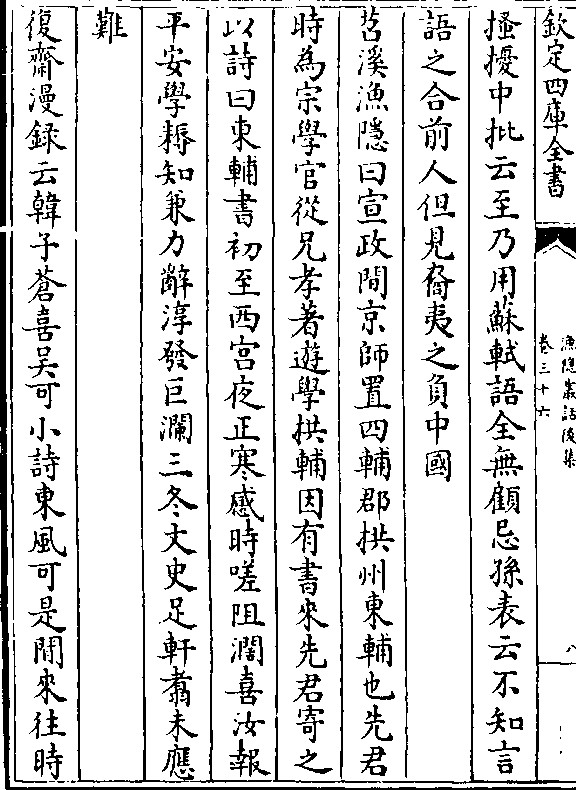 欽定四庫全書
漁隱叢話後集
卷三十六
八
搔擾中批云至乃用蘇軾語全無顧忌孫表云不知言
語之合前人但見裔夷之負中國
苕溪漁隱曰宣政間京師置四輔郡拱州東輔也先君
時為宗學官從兄孝著遊學拱輔因有書來先君寄之
以詩曰東輔書初至西宫夜正寒感時嗟阻濶喜汝報
平安學耨知兼力辭淳發巨瀾三冬文史足軒翥未應
難
復齋漫録云韓子蒼喜吳可小詩東風可是閒來往時